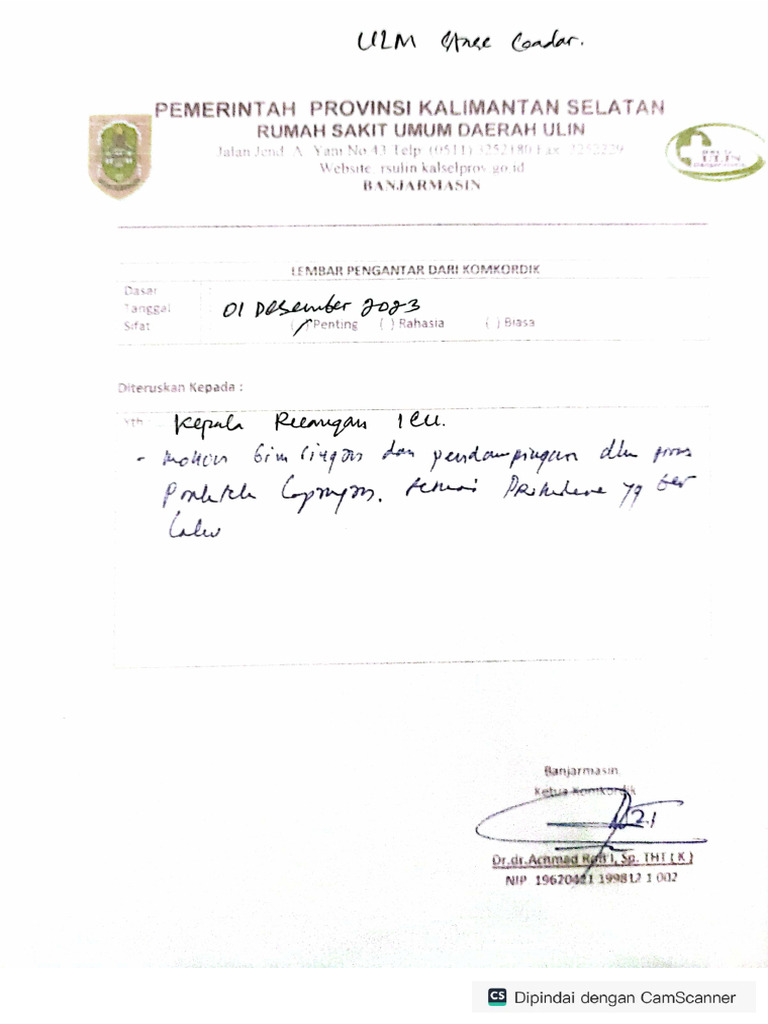 ULM Stase Gadar.
PEMERINTAH PROVINSI KALIMANTAN SELATAN
RUMAH SAKIT UMUM DAERAH ULIN
Jalan Jend. A. Yani No 43 Telp. (0511) 3252180 Fax. 3252229
Website: rsulin.kalselprov.go.id
BANJARMASIN
ULIN
LEMBAR PENGANTAR DARI KOMKORDIK
Dasar :
Tanggal : 01 Desember 2023
Sifat (/) Penting ( ) Rahasia ( ) Biasa
Diteruskan Kepada :
Yth : Kepala Ruangan ICU.
- Mohon bimbingan dan pendampingan dlm proses
Praktek lapangan. sesuai yg ber
laku
Banjarmasin
Ketua Komkordik
Dr.dr.Achmad Rofi'i, Sp. THT ( K )
NIP 19620421 199812 1 002
CS Dipindai dengan CamScanner